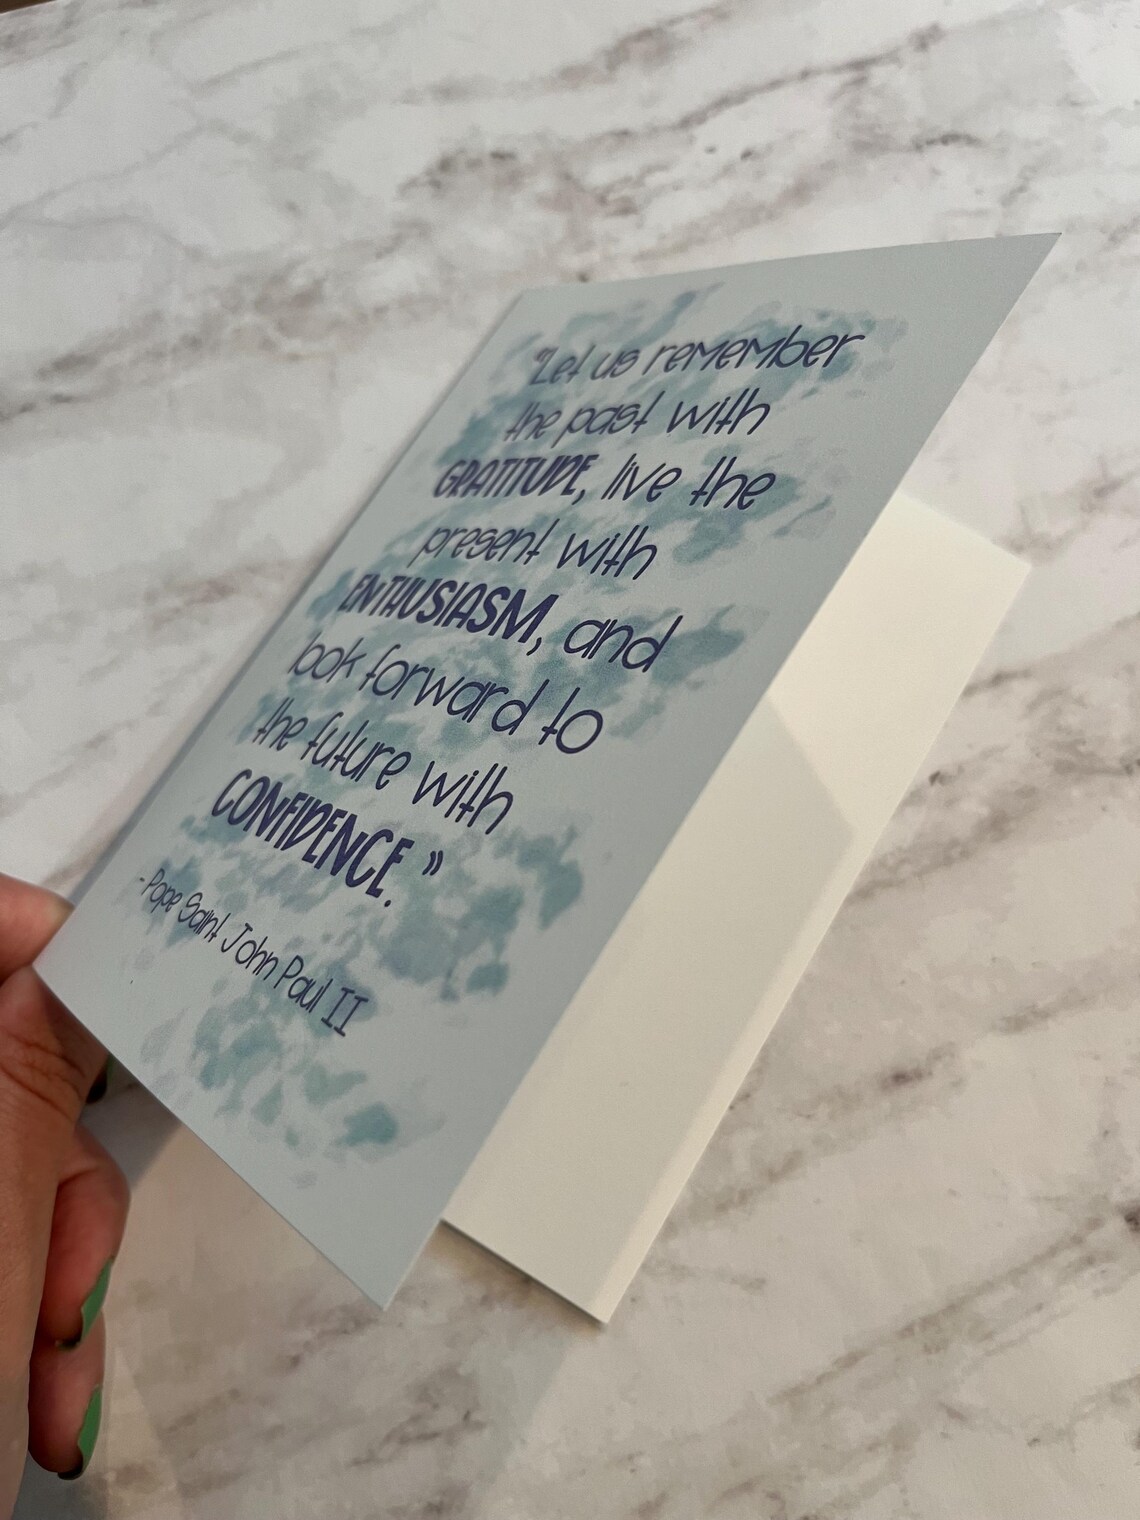 "Let us remember
the past with
GRATITUDE, live the
present with
ENTHUSIASM, and
look forward to
the future with
CONFIDENCE."
- Pope Saint John Paul II